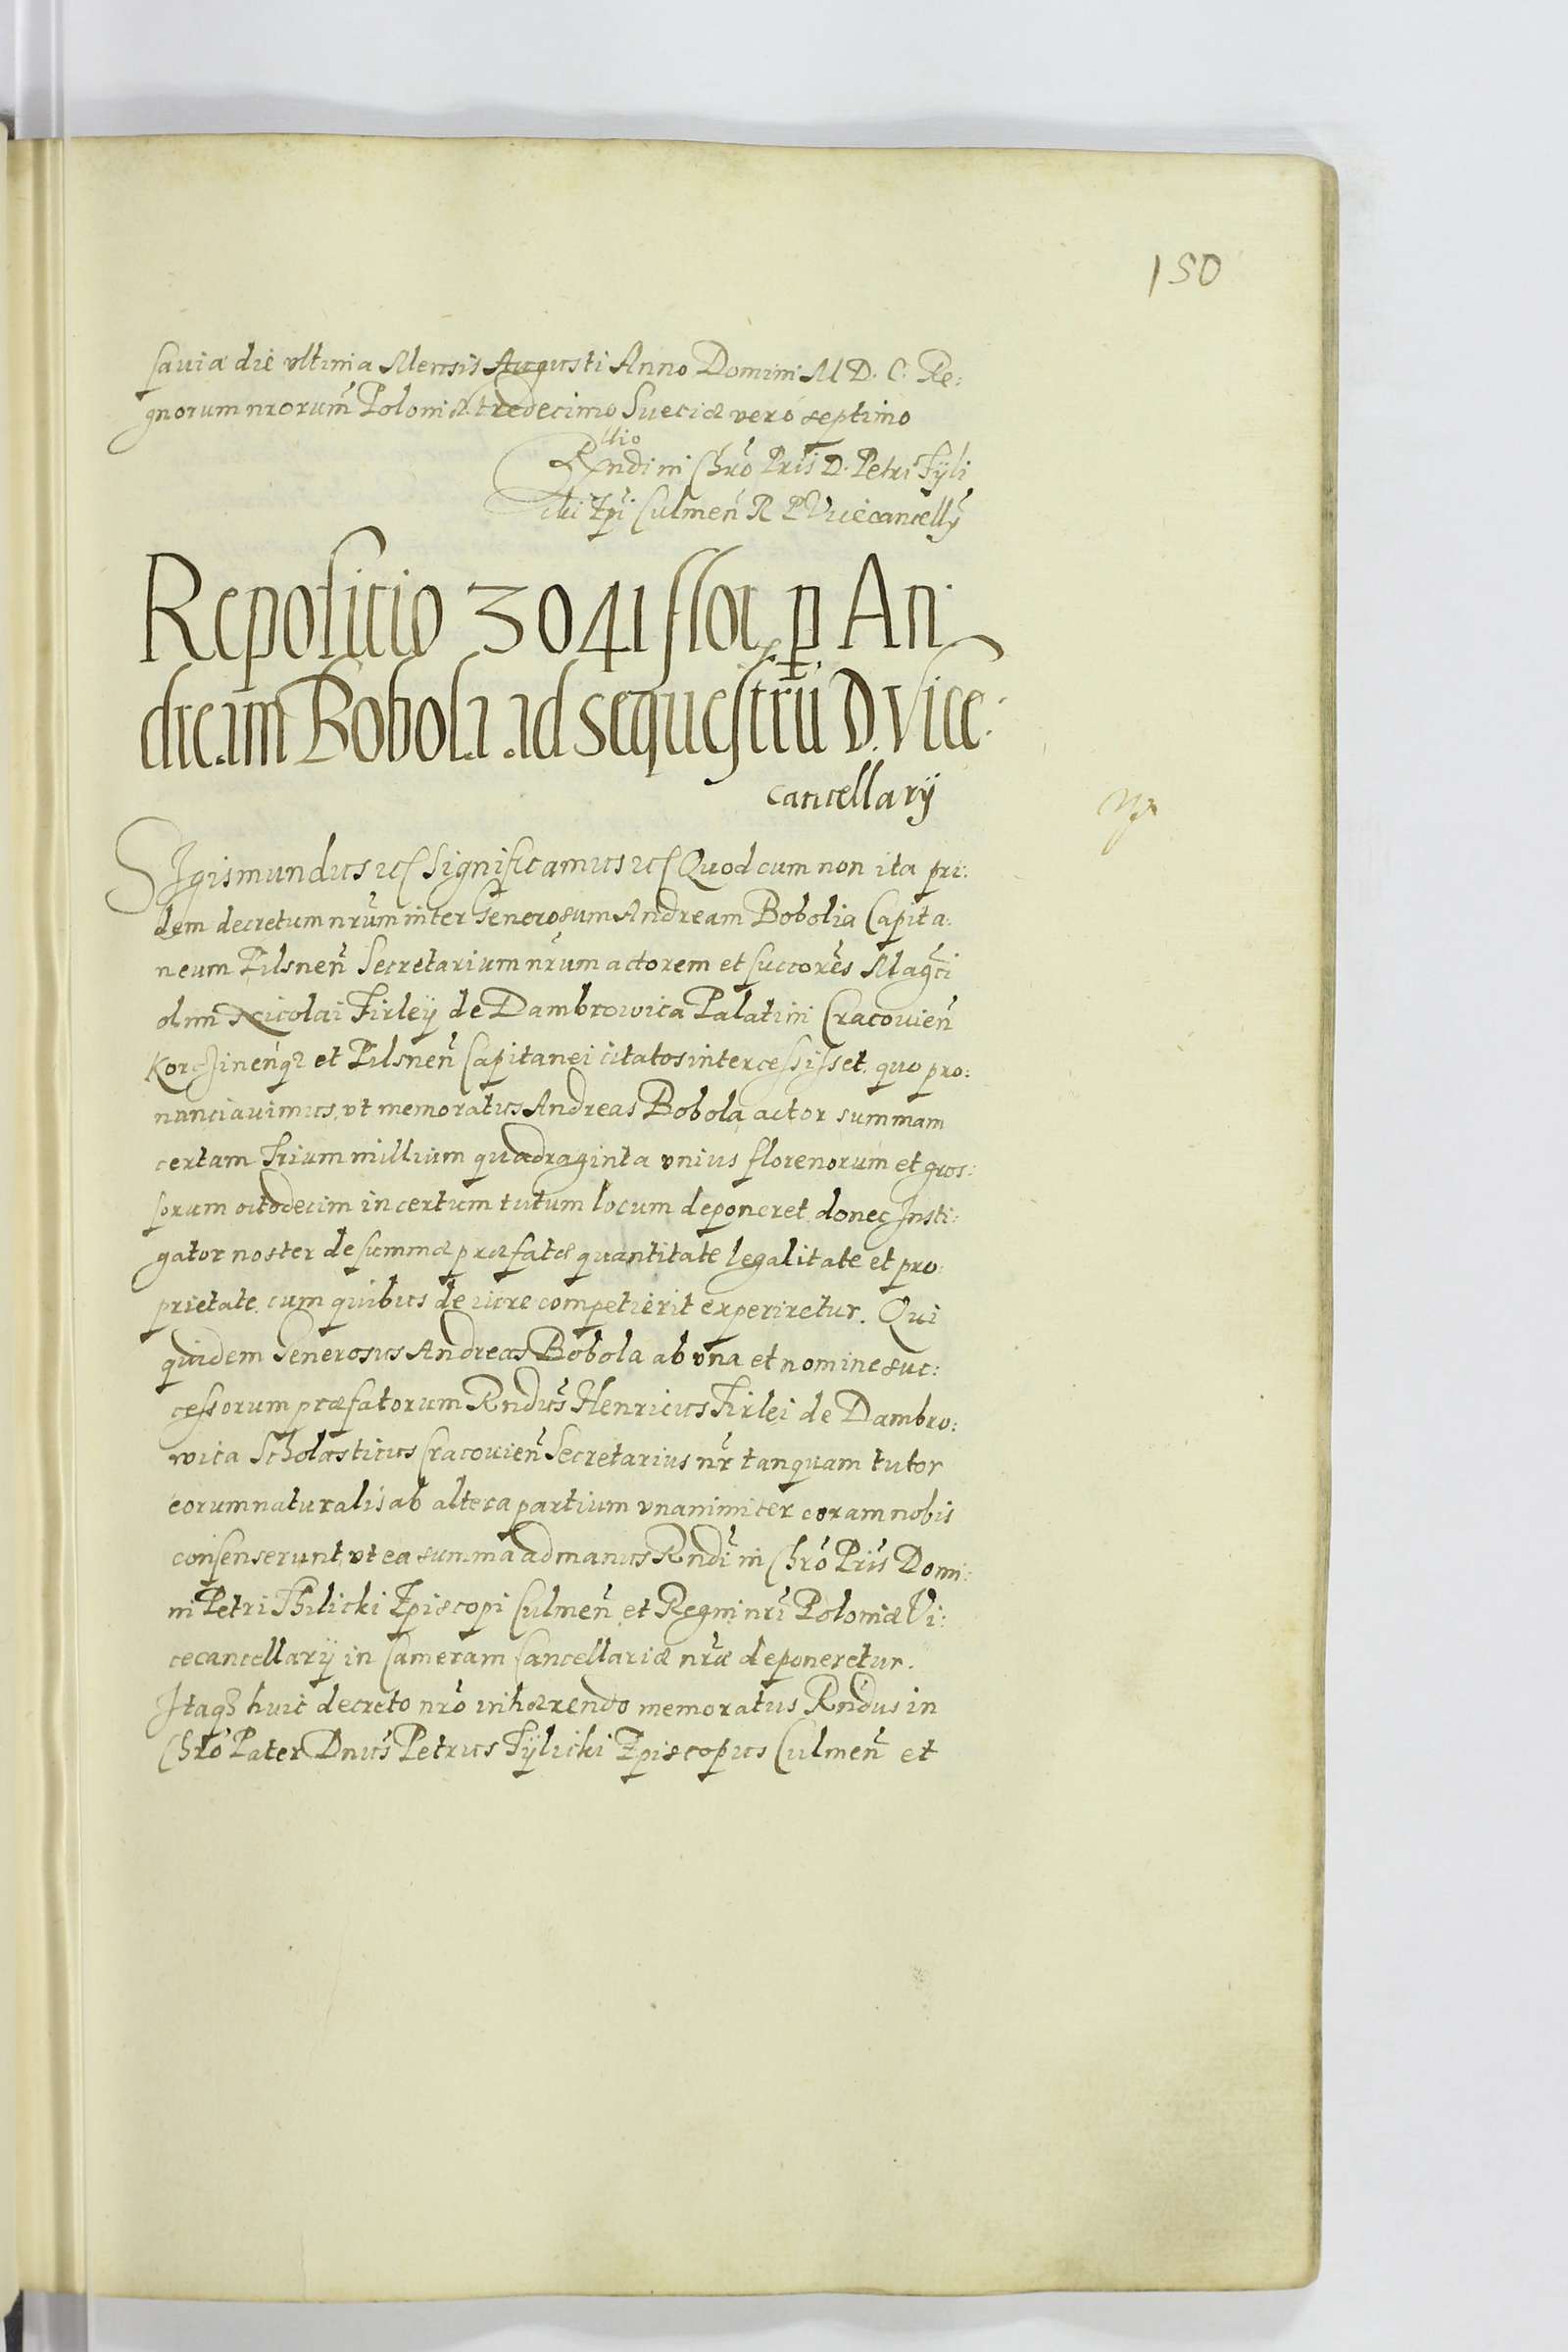 150
saviæ die vltima Mensis Augusti Anno Domini M D. C. Re:
gnorum nrorum̃ Poloniæ tredecimo Sueciæ vero septimo
Rltio
Rndi in Chrõ Pris D. Petri Tyli
cki Epĩ Culmeñ R P Vicecancellÿ
Repositio 3041 flor. ꝑ An
dream Bobola ad sequestrũ D. Vice:
cancellarÿ
SIgismundus etc Significamus etc Quod cum non ita pri:
dem decretum nr̃um inter Generosum Andream Bobolia Capita:
neum Pilsneñ Secretarium nr̃um actorem et succorẽs Magcĩ
olim Nicolai Firleÿ de Dambrowica Palatini Cracovieñ
Korczineñqȝ et Pilsneñ Capitanei citatos intercessisset, quo pro:
nunciavimus, vt memoratus Andreas Bobola actor summam
certam Trium millium quadraginta vnius florenorum et gros:
sorum octodecim in certum tutum locum deponeret, donec Insti:
gator noster de summæ præfatæ quantitate legalitate et pro:
prietate, cum quibus de iure competierit experiretur. Qui
quidem Generosus Andreas Bobola ab vna et nomine suc:
cessorum præfatorum Rndũs Henricus Firlei de Dambro:
wica Scholasticus Cracovieñ Secretarius nr̃ tanquam tutor
eorum naturalis ab altera partium vnanimiter coram nobis
consenserunt, vt ea summa ad manus Rndĩ in Chrõ Pris Domi:
ni Petri Thilicki Episcopi Culmeñ et Regni nrĩ Poloniæ Vi:
cecancellarÿ in Cameram Cancellariæ nr̃æ deponeretur.
Itaqȝ huic decreto nrõ inhærendo memoratus Rndus in
Chrõ Pater Dnũs Petrus Tÿlicki Episcopus Culmeñ et